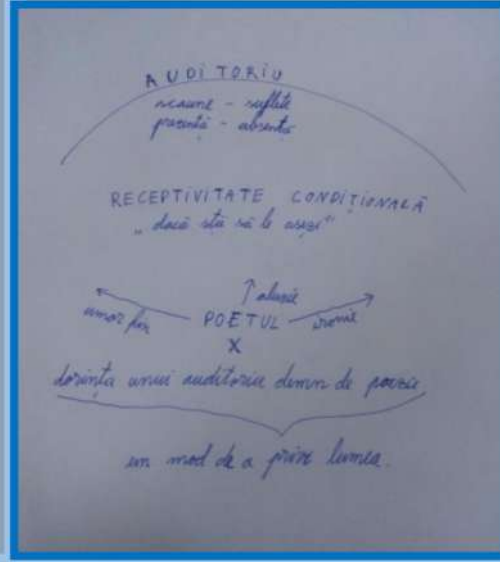 AUDITORIU
scaune - suflete
prezență - absență
RECEPTIVITATE CONDIȚIONALĂ
"dacă știi să le așezi"
↑ aluzie
umor fin POETUL ironie
X
dorința unui auditoriu demn de poezie
un mod de a privi lumea.